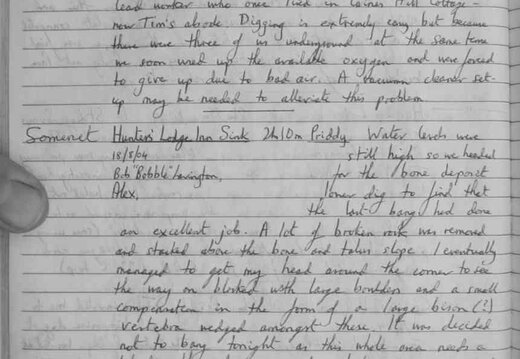 lead worker who once lived in Lainer Hill Cottage -
now Tim's abode. Digging is extremely easy but because
there were three of us underground at the same time
we soon used up the available oxygen and were forced
to give up due to bad air. A vacuum cleaner set-
up may be needed to alleviate this problem
Somerset Hunters Lodge Inn Sink 2h10m Priddy. Water levels were
18/8/04 still high so we headed
Bob "Bobble" Lavington, for the bone deposit
Alex, lower dig to find that
the last bang had done
an excellent job. A lot of broken rock was removed
and stacked above the bone and talus slope. I eventually
managed to get my head around the corner to see
the way on blocked with large boulders and a small
compensation in the form of a large bison(?)
vertebra wedged amongst these. It was decided
not to bang tonight as this whole area needs a